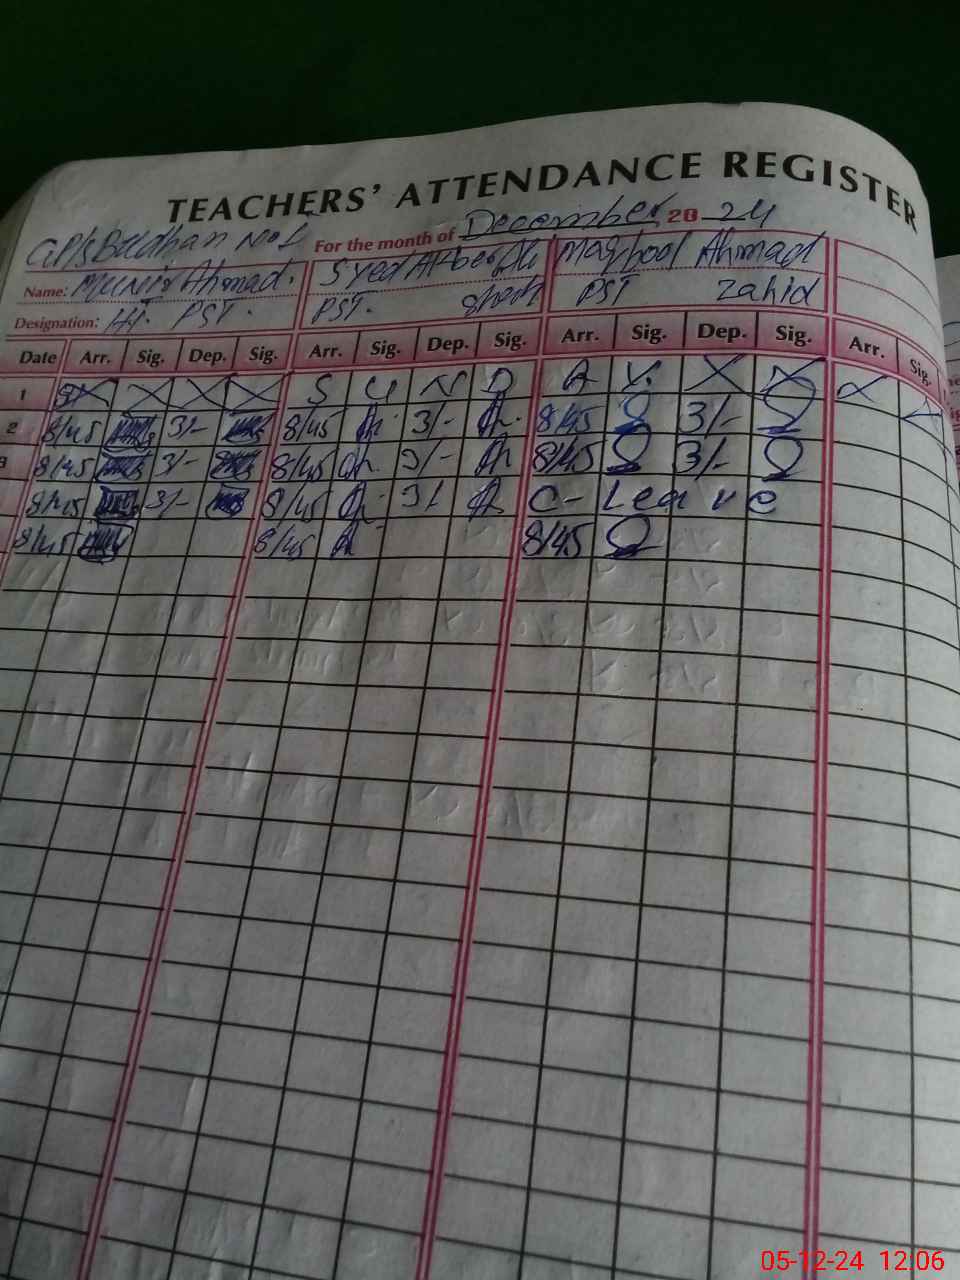 TEACHERS' ATTENDANCE REGISTER
GPS Buldhan No 1 For the month of December 2024
Name: Munir Ahmad. Syed Akber Maqbool Ahmad
Designation: HT. PST. PST. PST Zahid
Date Arr. Sig. Dep. Sig. Arr. Sig. Dep. Sig. Arr. Sig. Dep. Sig. Arr. Sig.
1 X X X S U N D A Y X X X
2 8/45 3/- 8/45 3/- 8/45 3/-
3 8/45 3/- 8/45 3/- 8/45 3/-
8/45 3/- 8/45 3/- C-Leave
8/45 8/45 8/45
05-12-24 12:06